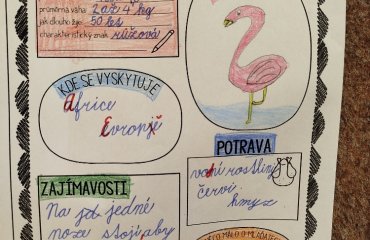 průměrná váha: 2 až 4 kg
jak dlouho žije: 50 let
charakteristický znak: růžová
KDE SE VYSKYTUJE
Africe
Evropě
POTRAVA
vodní rostliny
červi
hmyz
ZAJÍMAVOSTI
Na jedné
noze stojí aby
NĚCO MÁLO O MLÁĎATECH